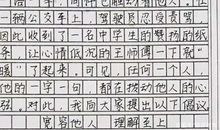 辆公交车上，驾驶员忍受责骂
因此收到了一名中学生的赞扬的纸
条，让心情低沉的王师傅一下子就
暖"了起来。可见，任何一个人
他的一字一句，都在拨动他人的心
弦。对此，我向大家提出以下倡议
宽容他人 理解至上